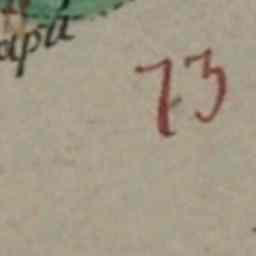 apa
73